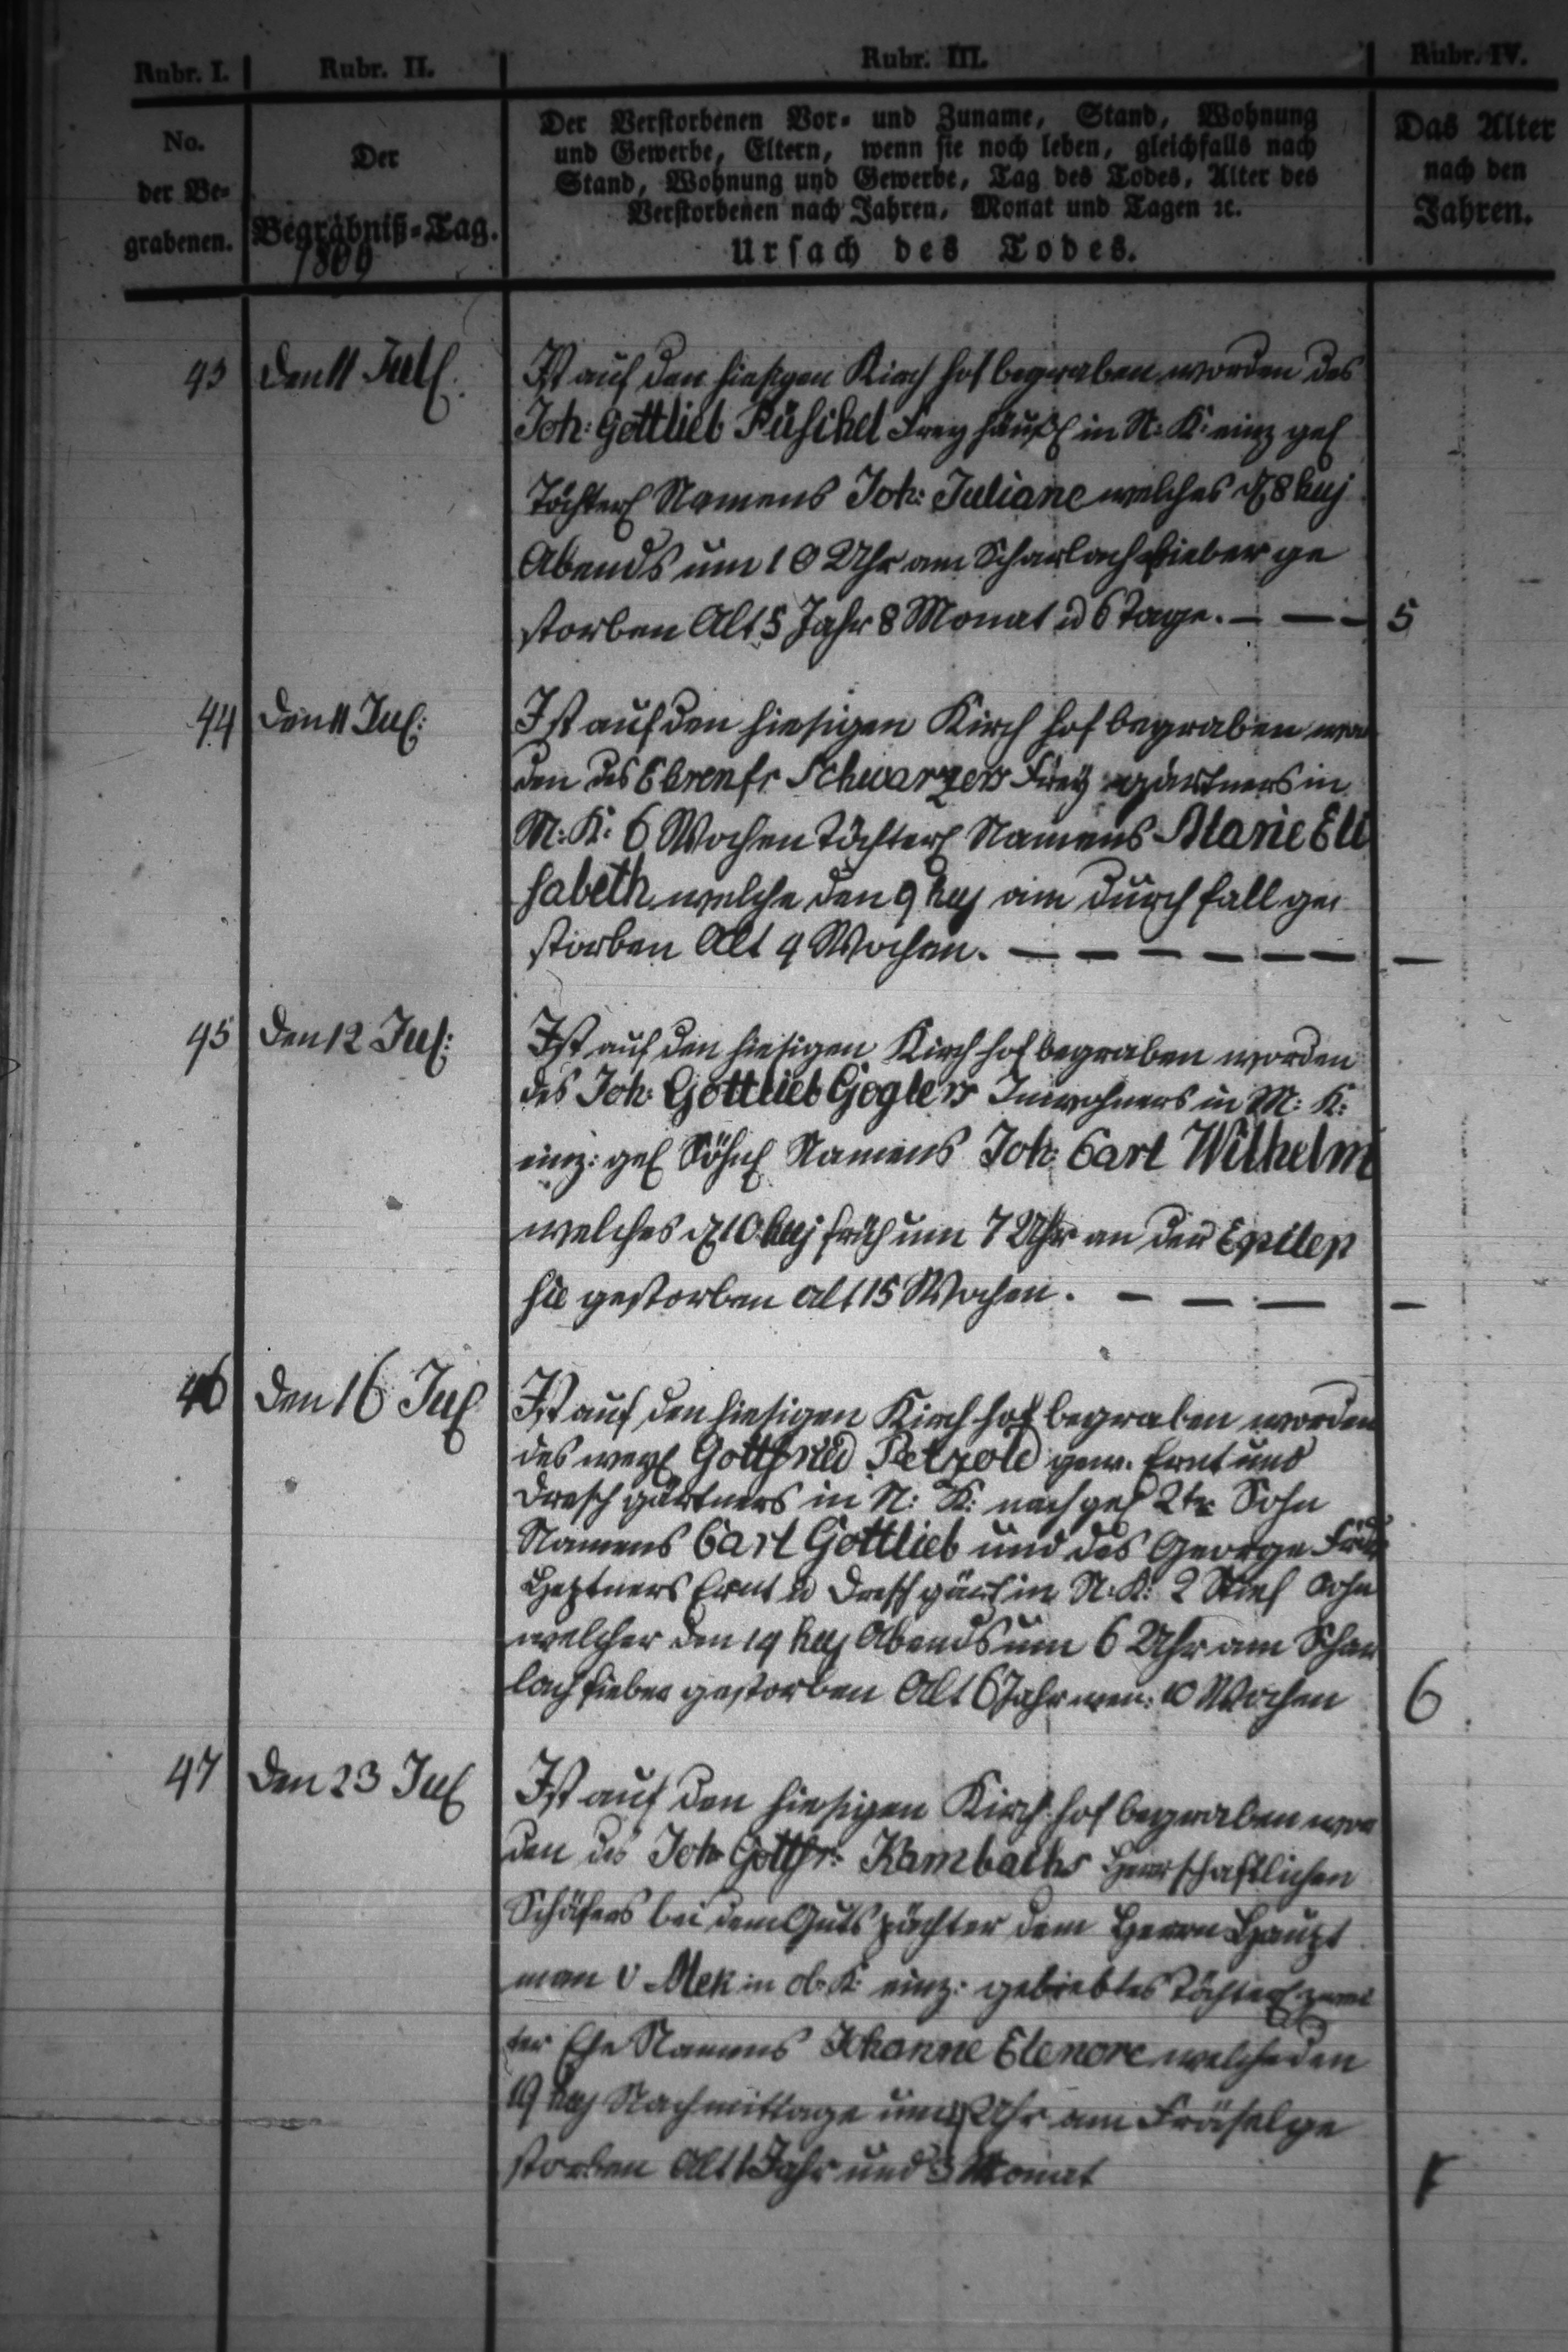 Rubr. I. Rubr. II. Rubr. III. Rubr. IV.
No.
der Be-
grabenen.
Der
Begräbniß-Tag.
1809
Der Verstorbenen Vor- und Zuname, Stand, Wohnung
und Gewerbe, Eltern, wenn sie noch leben, gleichfalls nach
Stand, Wohnung und Gewerbe, Tag des Todes, Alter des
Verstorbenen nach Jahren, Monat und Tagen ꝛc.
Ursach des Todes.
Das Alter
nach den
Jahren.
43 den 11 Jul.
Ist auf den hiesigen Kirch hof begraben worden des
Joh: Gottlieb Püschel Frey häusl in N: K: einz gel
Töchterl Namens Joh: Juliane welches d 8 huj
Abends um 10 Uhr am Scharlach fieber ge
storben Alt 5 Jahr 8 Monat u 6 Tage. — — — 5
44 den 11 Jul:
Ist auf den hiesigen Kirch hof begraben wor
den des Ehrenfr Schwarzers Frey gärtners in
M: K: 6 Wochen Töchterl Namens Marie Eli
sabeth welche den 9 huj am durch fall ge
storben Alt 4 Wochen. — — — — — — —
45 den 12 Jul:
Ist auf den hiesigen Kirch hof begraben worden
des Joh: Gottlieb Goglers Inwohners in M: K:
einz: gel Söhnl Namens Joh: Carl Wilhelm
welches d 10 huj früh um 7 Uhr an der Epilep
sie gestorben alt 15 Wochen. — — — —
46 den 16 Jul
Ist auf den hiesigen Kirch hof begraben worden
des weyl Gottfried Petzold gew. Ernt und
Dresch gärtners in N: K: nachgel 2tr Sohn
Namens Carl Gottlieb und des George
Ernt u Dresch gärt in N: K: 2 Stief Sohn
welcher den 14 huj Abends um 6 Uhr am Schar
lach fieber gestorben Alt 6 Jahr wen: 10 Wochen 6
47 den 23 Jul
Ist auf den hiesigen Kirch hof begraben wor
den des Joh Gottfr: Kambachs Herrschaftlichen
Schäfers bei dem Guts pächter dem Herrn Haupt
man v Mek in ob: K: einz: geliebtes Töchterl zwei
ter Ehe Namens Johanne Elenore welche den
19 huj Nachmittage um Uhr am ge
storben Alt 1 Jahr und 3 Monat